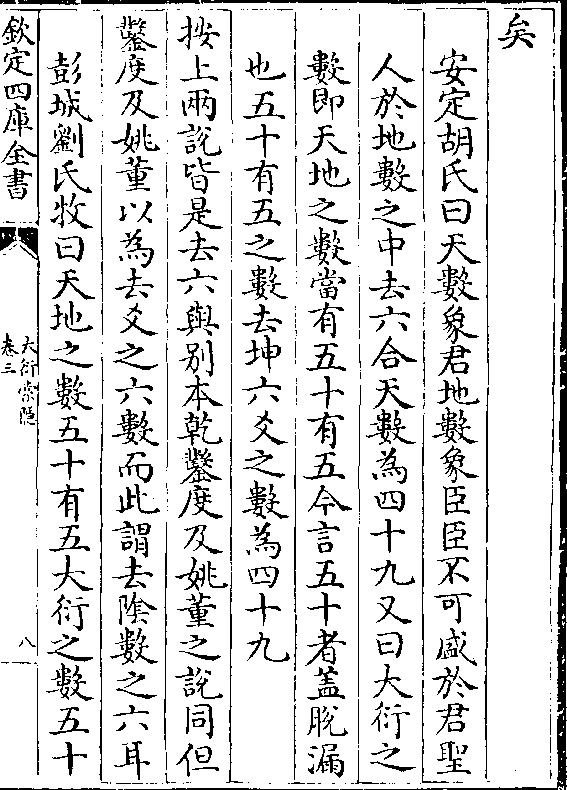 矣
安定胡氏曰天數象君地數象臣臣不可盛於君聖
人於地數之中去六合天數為四十九又曰大衍之
數即天地之數當有五十有五今言五十者蓋脫漏
也五十有五之數去坤六爻之數為四十九
按上兩説皆是去六與別本乾鑿度及姚董之說同但
鑿度及姚董以為去爻之六數而此謂去陰數之六耳
彭城劉氏牧曰天地之數五十有五大衍之數五十
欽定四庫全書
大衍索隱
卷三
八